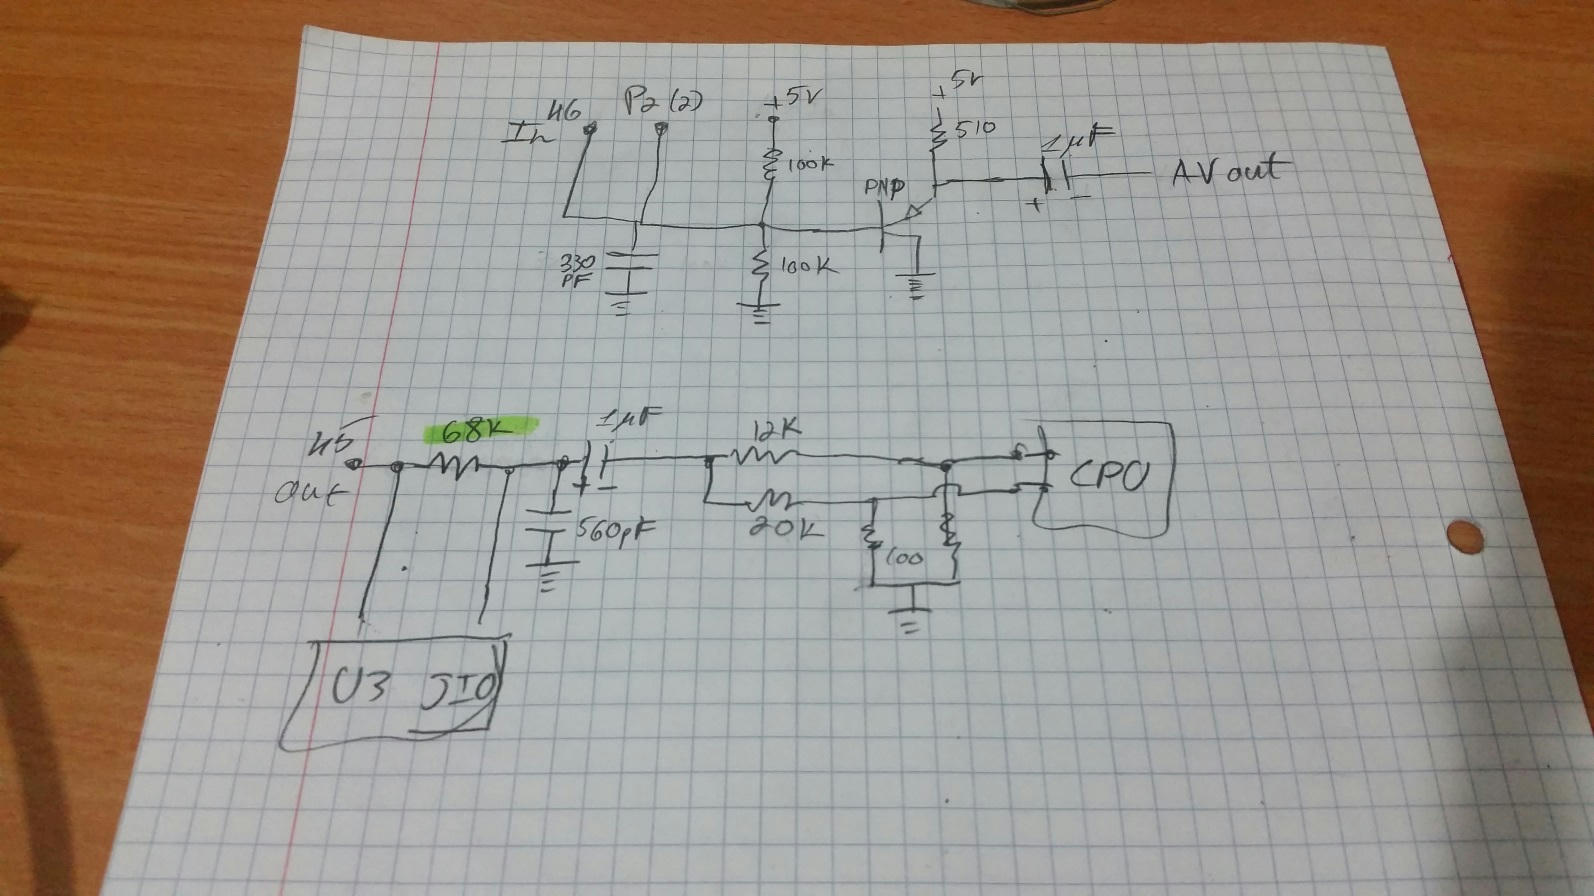 46
In
P2 (2)
+5V
100K
+5V
510
1µF
PNP
+
-
AV out
330
PF
100K
45
Out
68K
1µF
+
-
560pF
12K
20K
100
CPU
U3 JIO